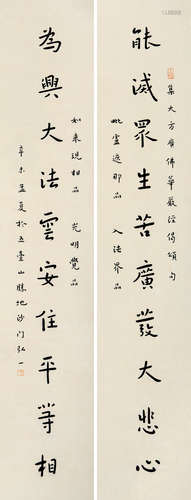 集大方廣佛華嚴經偈頌句
能滅眾生苦廣發大悲心
毗盧遮那品 入法界品
為興大法雲安住平等相
如來現相品 光明覺品
辛未孟夏於五臺山勝地沙門弘一